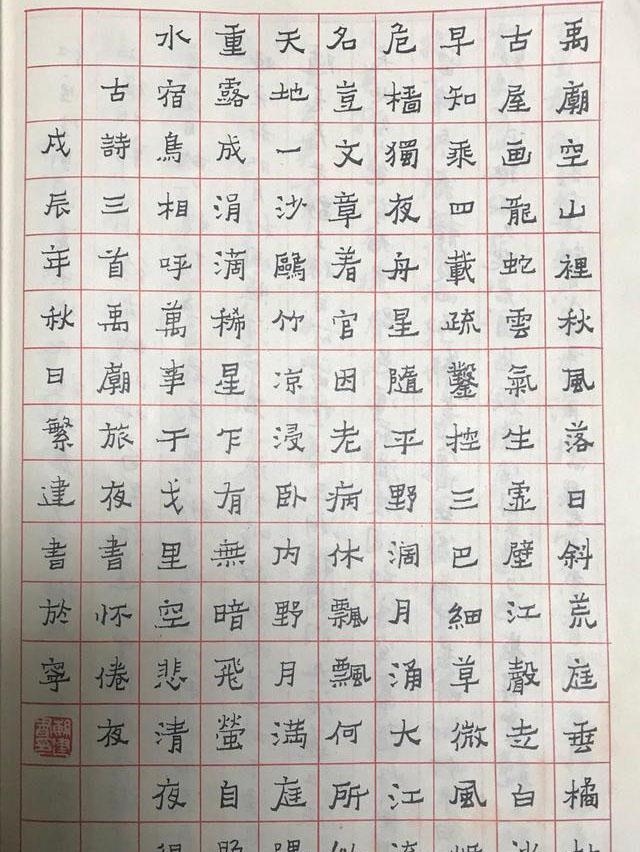 禹廟空山裡秋風落日斜荒庭垂橘
古屋画龍蛇雲氣生虛壁江聲走白
早知乘四載疏鑿控三巴細草微風
危檣獨夜舟星隨平野濶月涌大江
名豈文章着官因老病休飄飄何所
天地一沙鷗竹凉浸卧内野月滿庭
重露成涓滴稀星乍有無暗飛螢自
水宿鳥相呼萬事干戈里空悲清夜
古詩三首禹廟旅夜書怀倦夜
戊辰年秋日繁建書於寧